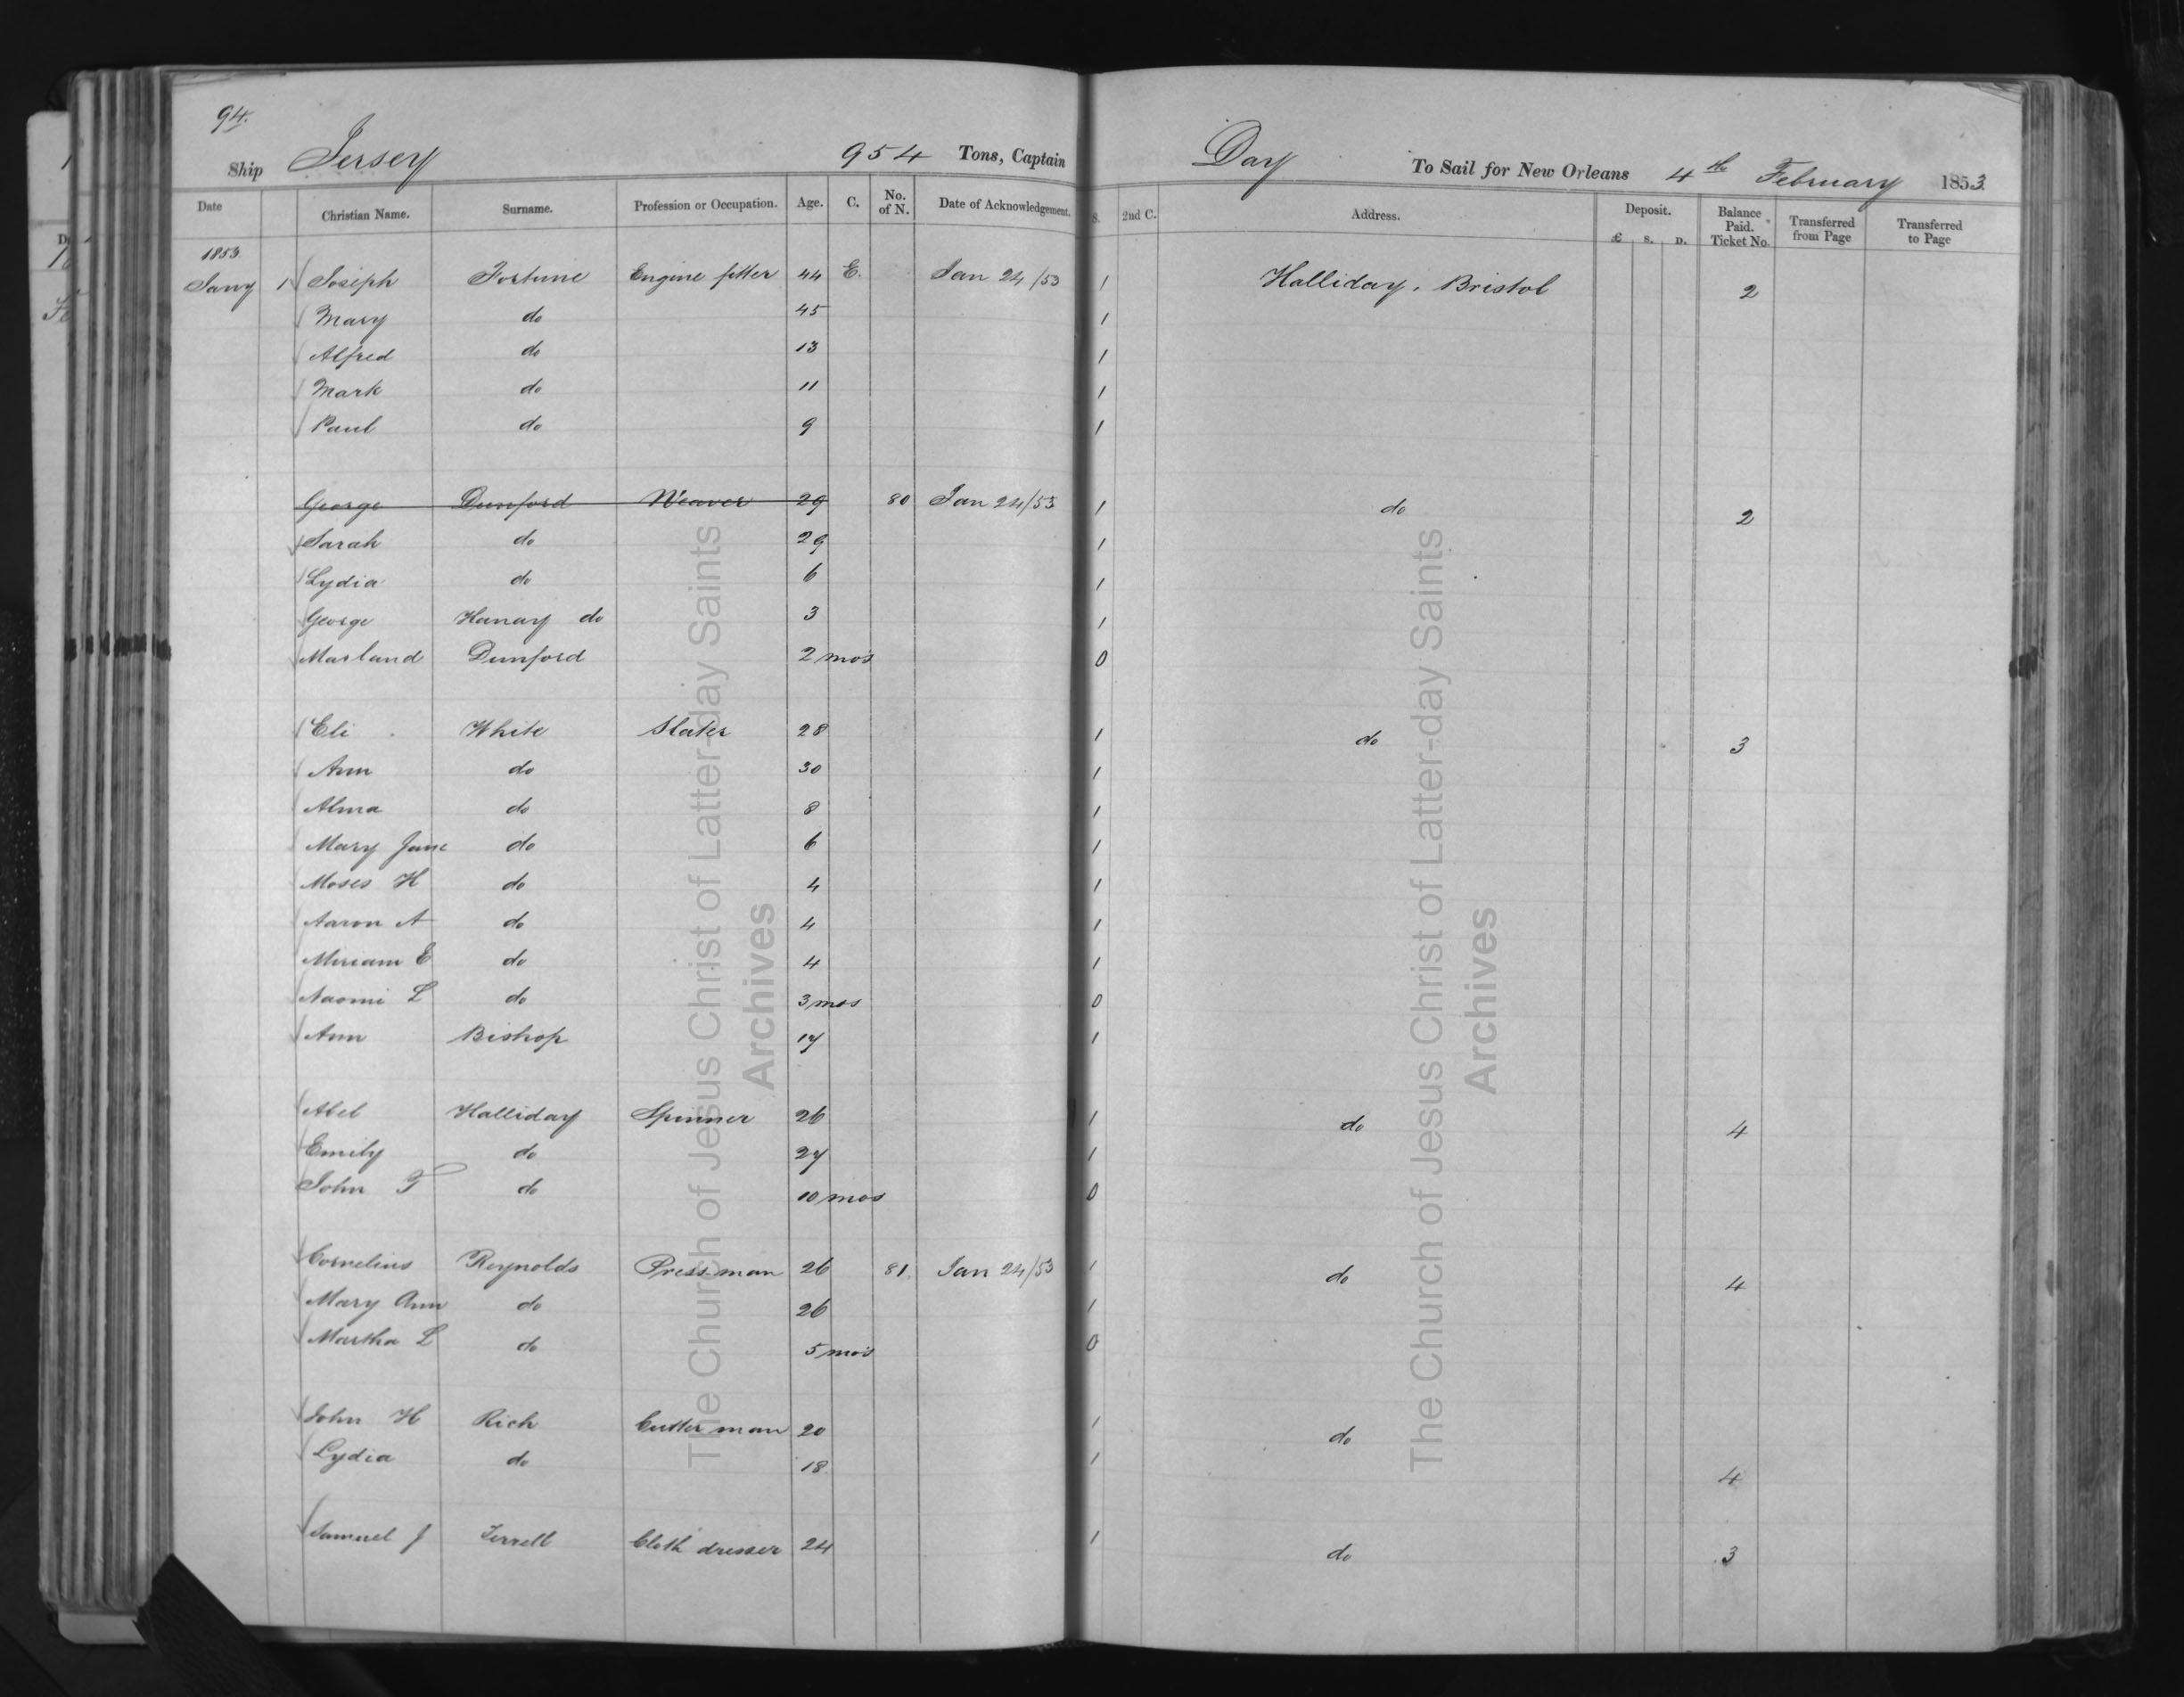 94.
Ship Jersey 954 Tons, Captain Day To Sail for New Orleans 4th February 1853.
Date Christian Name. Surname. Profession or Occupation. Age. C. No. of N. Date of Acknowledgement. S. 2nd C. Address. Deposit. £ S. D. Balance Paid. Ticket No. Transferred from Page Transferred to Page
1853
Jany 1 Joseph Fortune Engine fitter 44 E. Jan 24/53 1 Halliday. Bristol 2
Mary do 45 1
Alfred do 13 1
Mark do 11 1
Paul do 9 1
George Dunford Weaver 29 80 Jan 24/53 1 do 2
Sarah do 29 1
Lydia do 6 1
George Hanay do 3 1
Marland Dunford 2 mos 0
Eli White Slater 28 1 do 3
Ann do 30 1
Alma do 8 1
Mary Jane do 6 1
Moses H do 4 1
Aaron A do 4 1
Miriam E do 4 1
Naomi L do 3 mos 0
Ann Bishop 17 1
Abel Halliday Spinner 26 1 do 4
Emily do 27 1
John T do 10 mos 0
Cornelius Reynolds Press man 26 81. Jan 24/53 1 do 4
Mary Ann do 26 1
Martha L do 5 mos 0
John H Rich Cutter man 20 1 do
Lydia do 18 1 4
Samuel J Terrell Cloth dresser 24 1 do 3
The Church of Jesus Christ of Latter-day Saints
Archives
The Church of Jesus Christ of Latter-day Saints
Archives